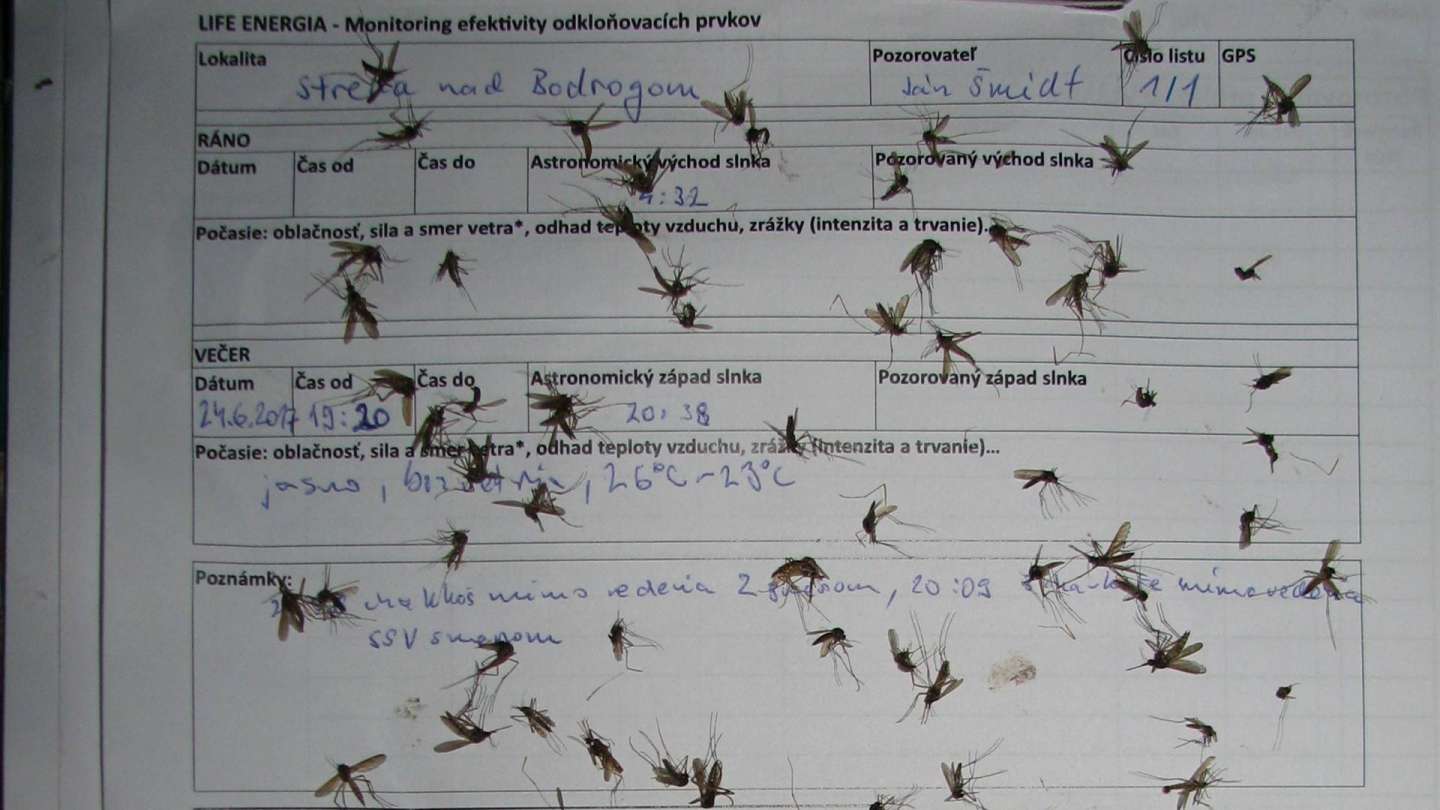 LIFE ENERGIA - Monitoring efektivity odkloňovacích prvkov
Lokalita Pozorovateľ Číslo listu GPS
Streda nad Bodrogom Ján Šmidt 1/1
RÁNO
Dátum Čas od Čas do Astronomický východ slnka Pozorovaný východ slnka
4:32
Počasie: oblačnosť, sila a smer vetra*, odhad teploty vzduchu, zrážky (intenzita a trvanie)...
VEČER
Dátum Čas od Čas do Astronomický západ slnka Pozorovaný západ slnka
24.6.2017 19:20 20:38
Počasie: oblačnosť, sila a smer vetra*, odhad teploty vzduchu, zrážky (intenzita a trvanie)...
jasno, bezvetrie, 26°C-23°C
Poznámky:
mimo vedenia Z smerom, 20:09 mimo vedenia
SSV smerom